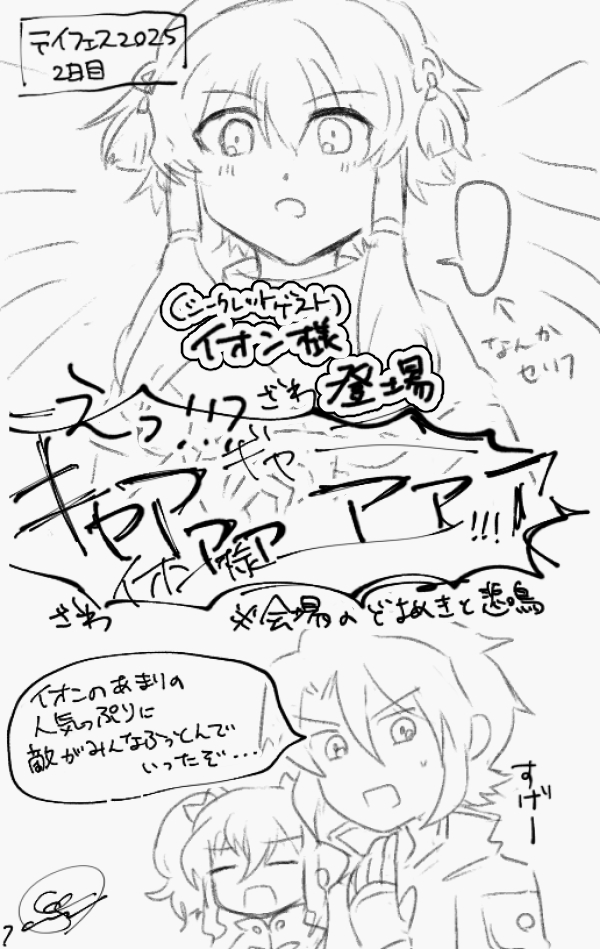 テイフェス2025
2日目
(シークレットゲスト)
イオン様
登場
なんか
セリフ
えっ!!?
ざわ
ギャー
キャアアアアアアア!!!
イオン様
ざわ
※会場のどよめきと悲鳴
イオンのあまりの
人気っぷりに
敵がみんなふっとんで
いったぞ...
すげー